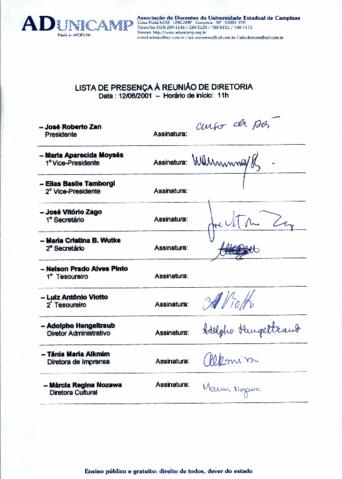 ADUNICAMP
Associação de Docentes da Universidade Estadual de Campinas
LISTA DE PRESENÇA À REUNIÃO DE DIRETORIA
Data : 12/06/2001 – Horário de início: 11h
– José Roberto Zan
Presidente Assinatura: curso de pós
– Maria Aparecida Moysés
1ª Vice-Presidente Assinatura:
– Elias Basile Tamborgi
2º Vice-Presidente Assinatura:
– José Vitório Zago
1º Secretário Assinatura: José Vitório Zago
– Maria Cristina B. Wutke
2º Secretário Assinatura:
– Nelson Prado Alves Pinto
1º Tesoureiro Assinatura:
– Luiz Antônio Viotto
2º Tesoureiro Assinatura: Viotto
– Adolpho Hengeltraub
Diretor Administrativo Assinatura: Adolpho Hengeltraub
– Tânia Maria Alkmim
Diretora de Imprensa Assinatura: Alkmim
– Márcia Regina Nozawa
Diretora Cultural Assinatura: Marcia Nozawa
Ensino público e gratuito: direito de todos, dever do estado